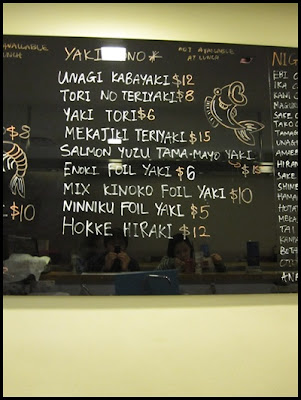 AVAILABLE
LUNCH
$8
$10
YAKI MONO*
NOT AVAILABLE
AT LUNCH
UNAGI KABAYAKI $12
TORI NO TERIYAKI $8
YAKI TORI $6
MEKAJIKI TERIYAKI $15
SALMON YUZU TAMA-MAYO YAKI
ENOKI FOIL YAKI $6
MIX KINOKO FOIL YAKI $10
NINNIKU FOIL YAKI $5
HOKKE HIRAKI $12
NIG
EBI
IKA
KANI
MAGUR
SAKE
TAKO
TAMA
UNAGI
HIRAM
SAKE
SHIME
HAMA
HOTAT
MEKA
TAI
KANPA
BOTA